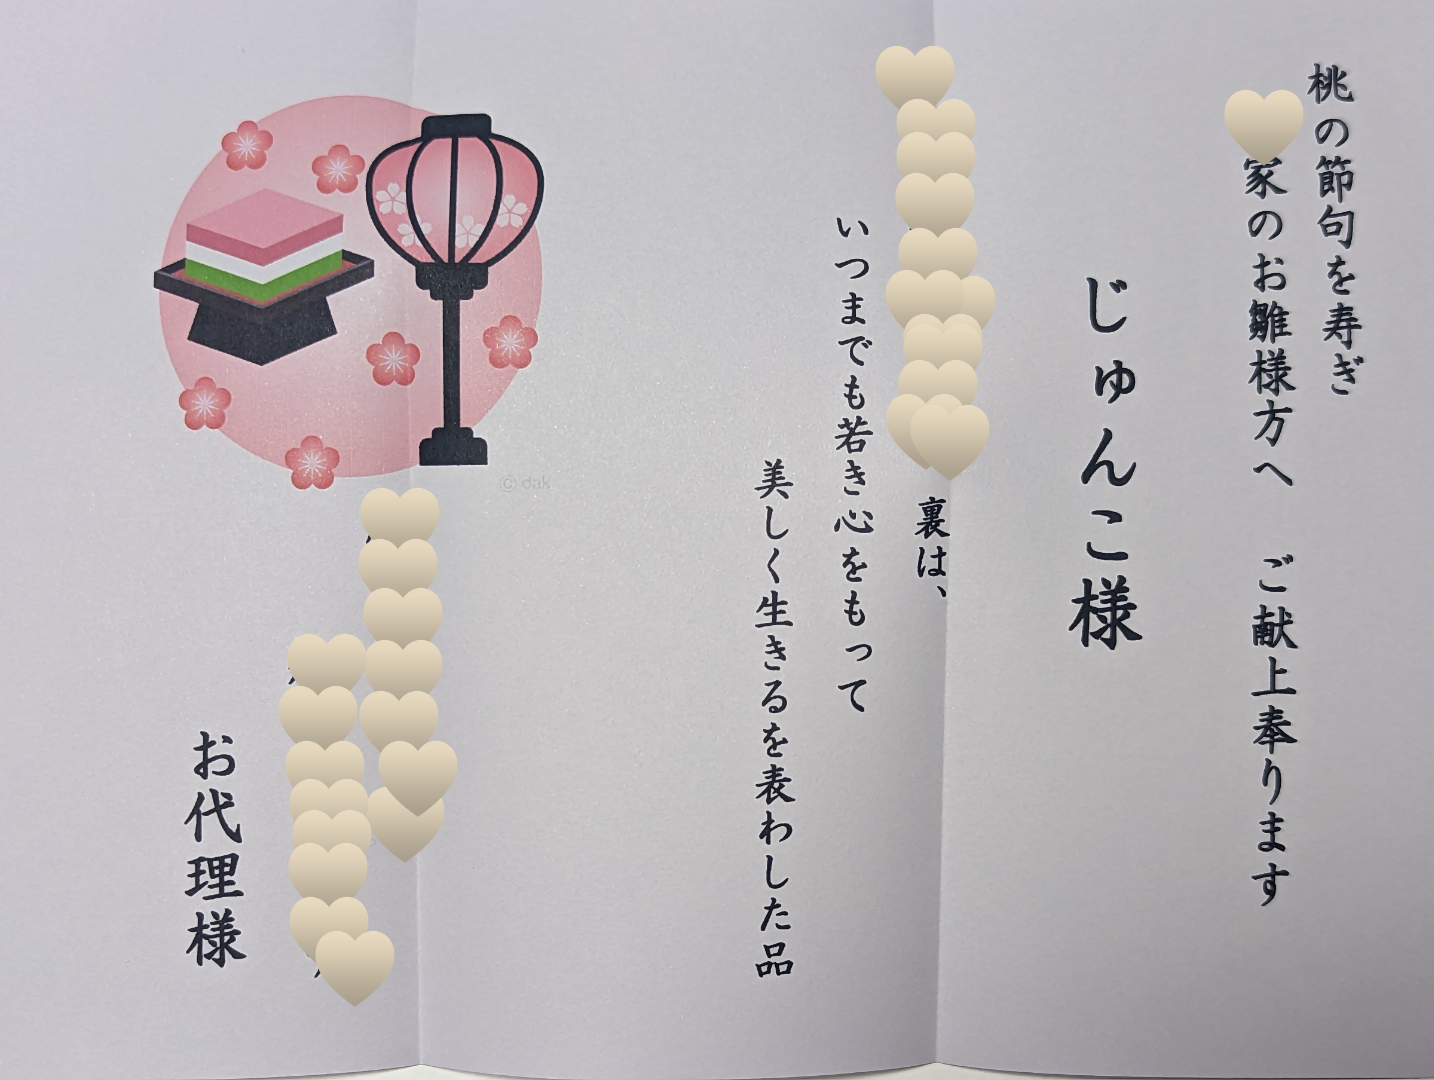 桃の節句を寿ぎ
家のお雛様方へ　ご献上奉ります
じゅんこ様
裏は、
いつまでも若き心をもって
美しく生きるを表わした品
© dak
お代理様